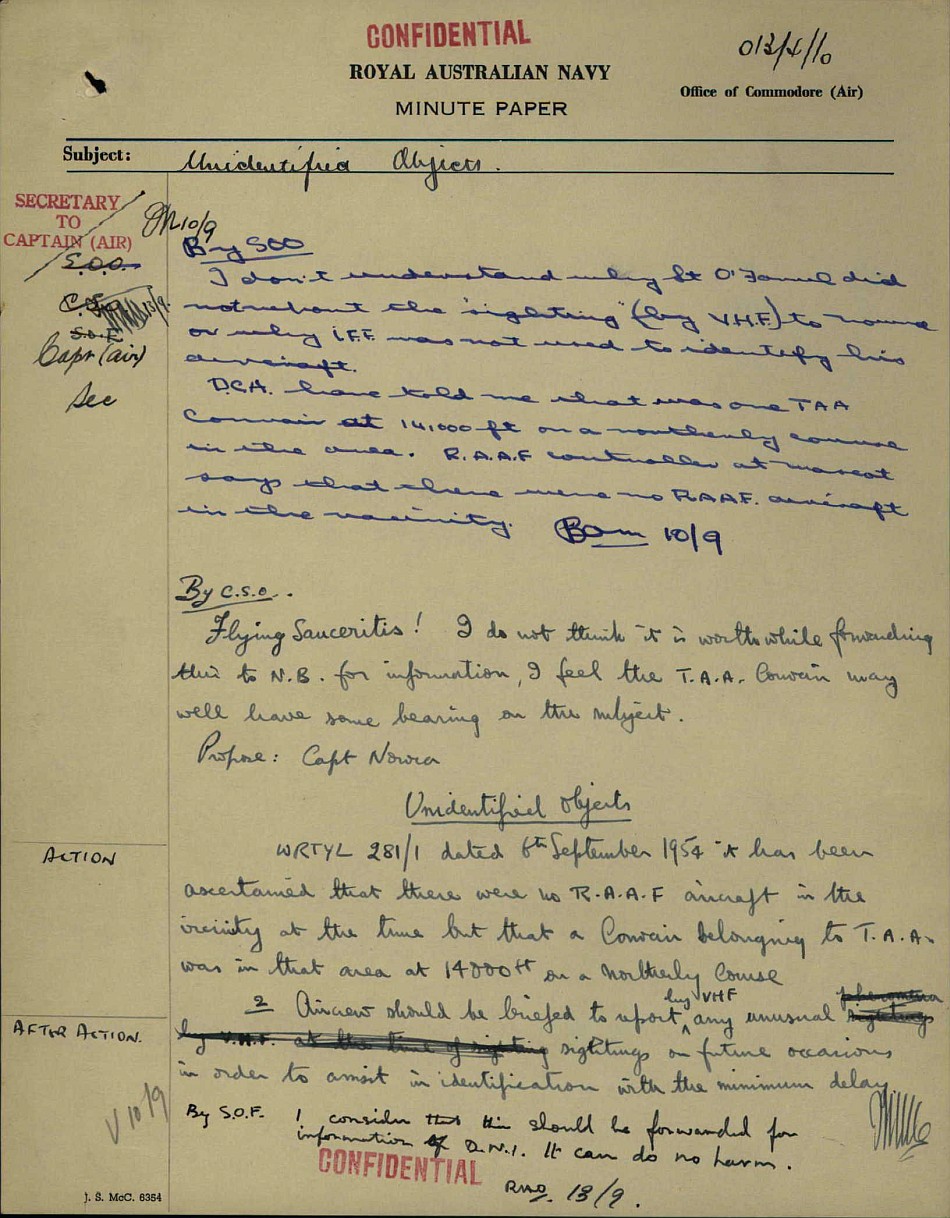 CONFIDENTIAL
013/4/10
ROYAL AUSTRALIAN NAVY
Office of Commodore (Air)
MINUTE PAPER
Subject: Unidentified Objects.
SECRETARY
TO
CAPTAIN (AIR)
10/9
S.O.O.
13/9.
S.O.F.
Capt (air)
Sec
By SOO
I don't understand why Lt O'Farrell did
not report the "sighting" (by V.H.F.) to nowra
or why I.F.F. was not used to identify his
aircraft.
D.C.A. have told me that was one TAA
Convair at 14,000 ft on a northerly course
in the area. R.A.A.F controller at mascot
says that there were no RAAF. aircraft
in the vacinity. 10/9
By C.S.O..
Flying Sauceritis! I do not think it is worthwhile forwarding
this to N.B. for information, I feel the T.A.A. Convair may
well have some bearing on the subject.
Propose: Capt Nowra
Unidentified Objects
WRTYL 281/1 dated 6th September 1954 it has been
ascertained that there were no R.A.A.F aircraft in the
vicinity at the time but that a Convair belonging to T.A.A.
was in that area at 14000ft on a Northerly Course
2 Aircrew should be briefed to report by VHF any unusual phenomena sightings
by V.H.F. at the time of sighting sightings on future occasions
in order to assist in identification with the minimum delay
ACTION
AFTER ACTION.
V 10/9
By S.O.F. I consider that this should be forwarded for
information of D.N.I. It can do no harm.
CONFIDENTIAL
13/9.
J. S. McC. 6354